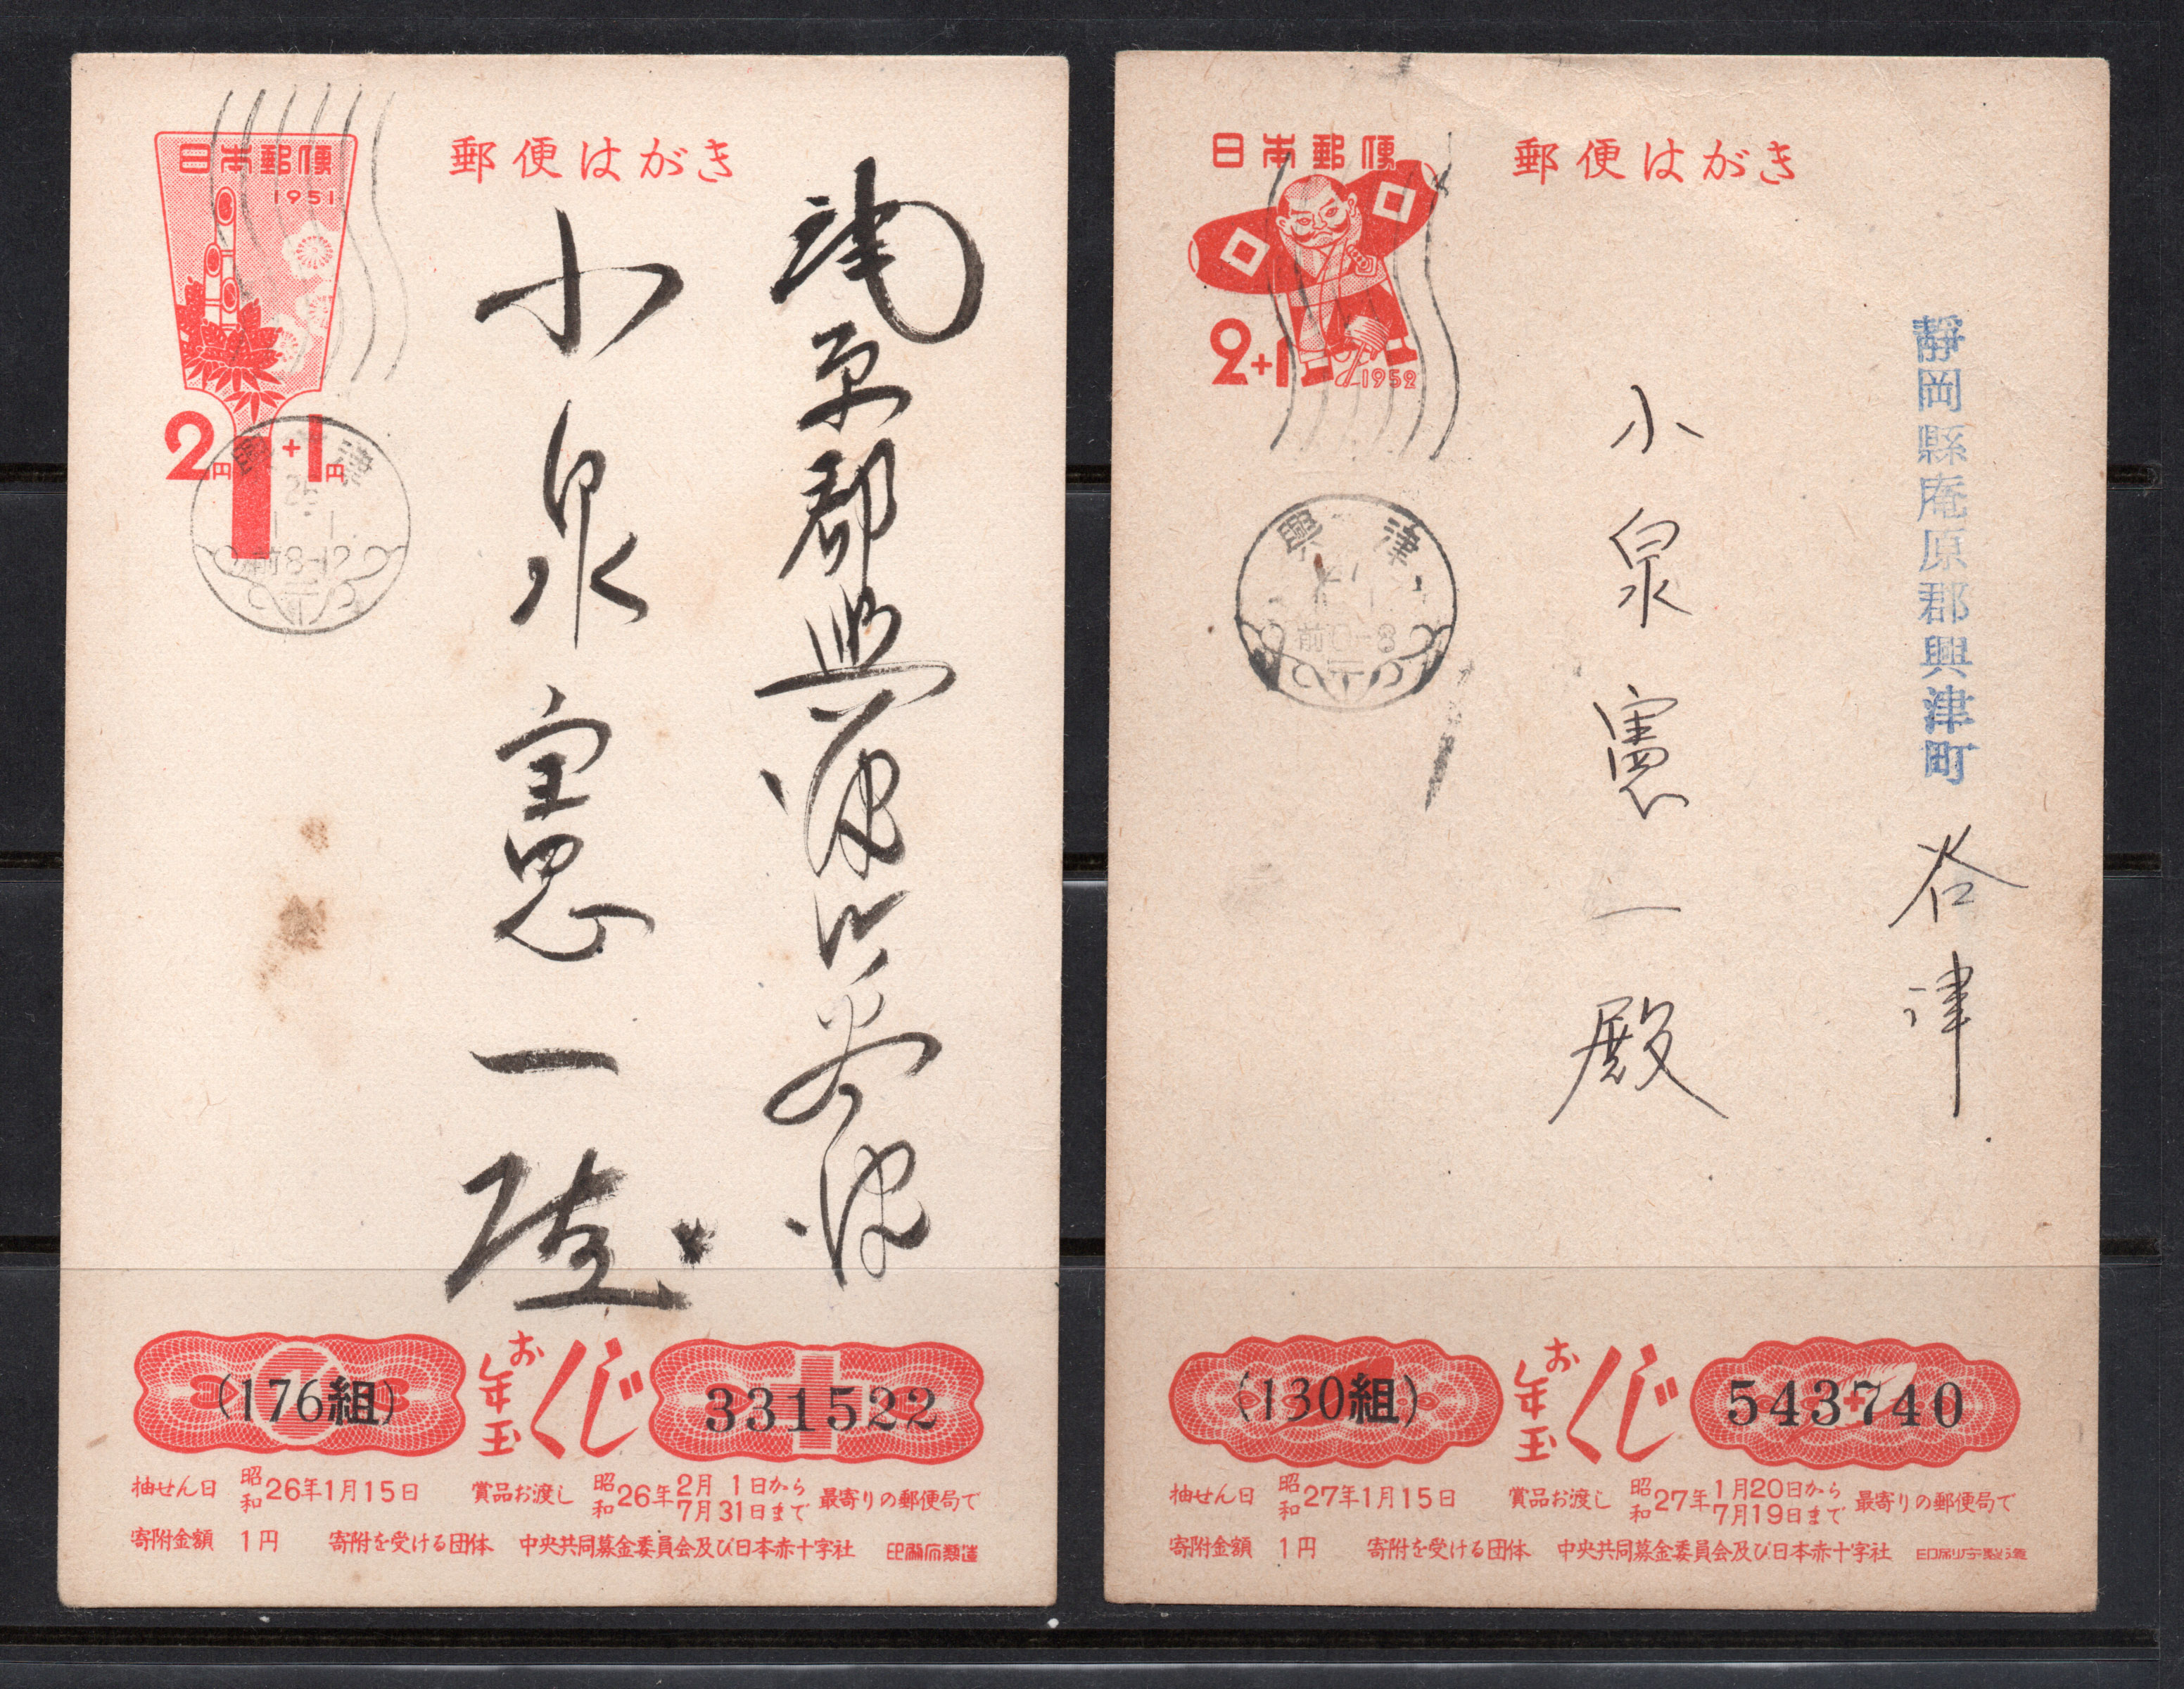 日本郵便
1951
2円+1円
郵便はがき
興津
26
1.1
前8-12
原郡興津町谷津
小泉憲一
(176組)
お年玉くじ
331522
抽せん日 昭和26年1月15日 賞品お渡し 昭和26年2月1日から7月31日まで 最寄りの郵便局で
寄附金額 1円 寄附を受ける団体 中央共同募金委員会及び日本赤十字社 印刷庁製造
日本郵便
2+1
1952
郵便はがき
興津
前0-8
靜岡縣庵原郡興津町 谷津
小泉憲一殿
(130組)
お年玉くじ
543740
抽せん日 昭和27年1月15日 賞品お渡し 昭和27年1月20日から7月19日まで 最寄りの郵便局で
寄附金額 1円 寄附を受ける団体 中央共同募金委員会及び日本赤十字社 印刷庁製造